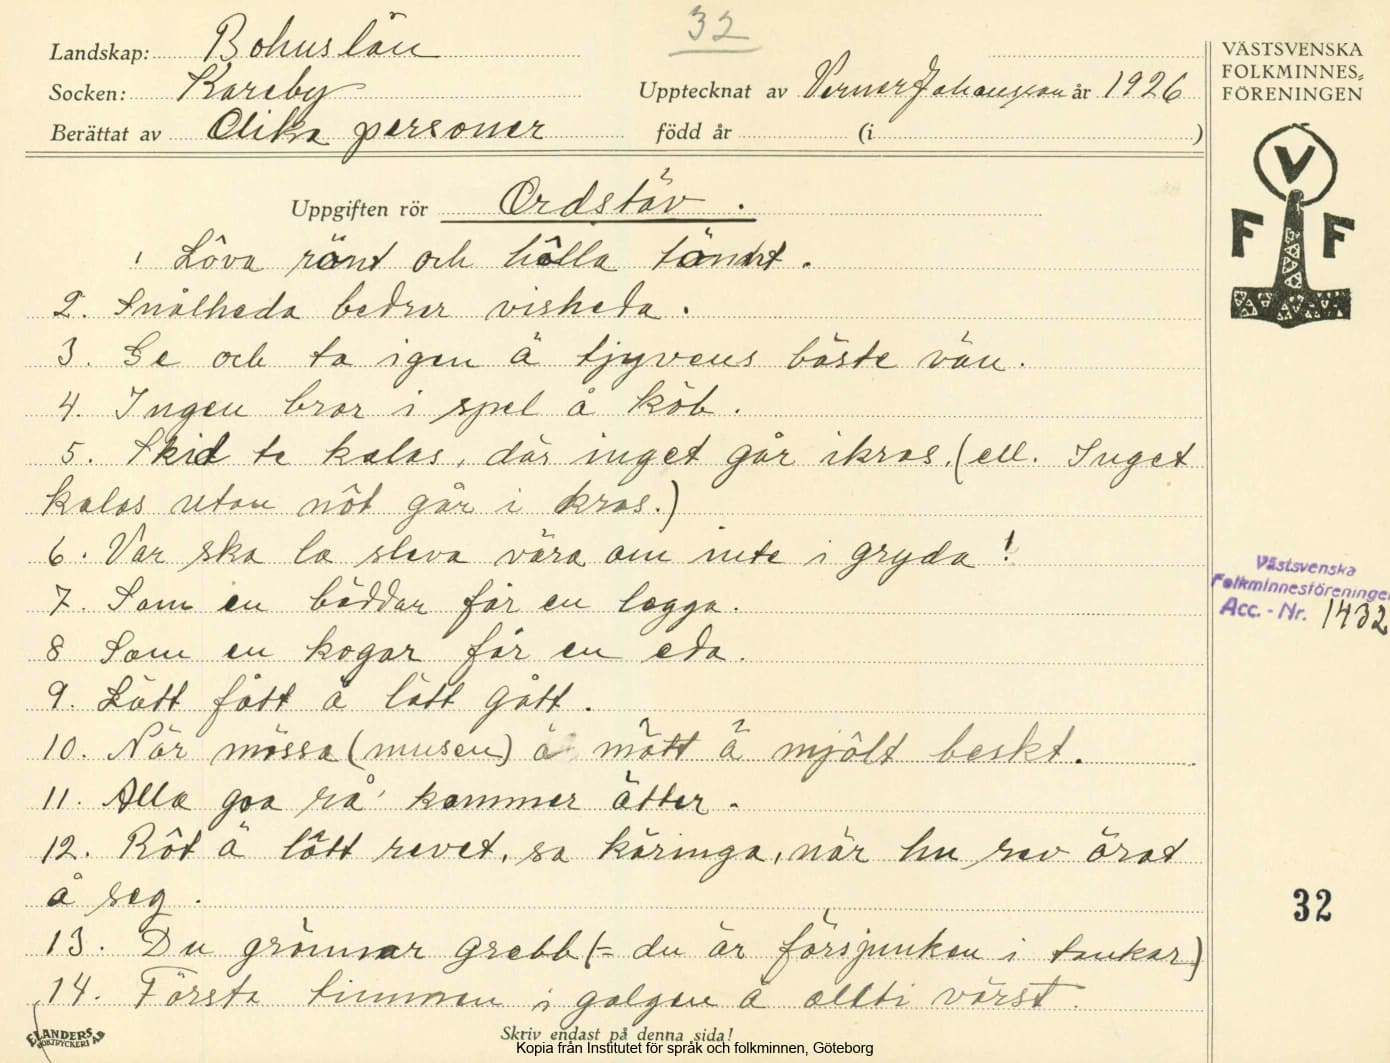 32
Landskap: Bohuslän
Socken: Kareby
Upptecknat av Verner Johansson år 1926
Berättat av Olika personer född år (i )
VÄSTSVENSKA
FOLKMINNES-
FÖRENINGEN
V
F F
Uppgiften rör Ordstäv.
1 Lôva rönt och hôlla tönnt.
2. Snålheda bedrer visheda.
3. Ge och ta igen ä tjyvens bäste vän.
4. Ingen bror i spel å köb.
5. Skid te kalas, där inget går ikras. (ell. Inget
kalas utan nôt går i kras.)
6. Var ska la sleva vära om inte i gryda!
7. Som en bäddar får en legga.
8 Som en kogar får en eda.
9. Lätt fått å lätt gått.
10. När mössa (musen) ä mätt ä mjölt beskt.
11. Alla goa rå' kommer ätter.
12. Rôt ä lätt revet, sa käringa, när hu rev årat
å seg.
13. Du grönnar grebb (= du är försjunken i tankar)
14. Första timmen i galgen ä allti värst.
Västsvenska
Folkminnesföreningen
Acc.-Nr. 1432
32
Skriv endast på denna sida!
ELANDERS
BOKTRYCKERI AB
Kopia från Institutet för språk och folkminnen, Göteborg